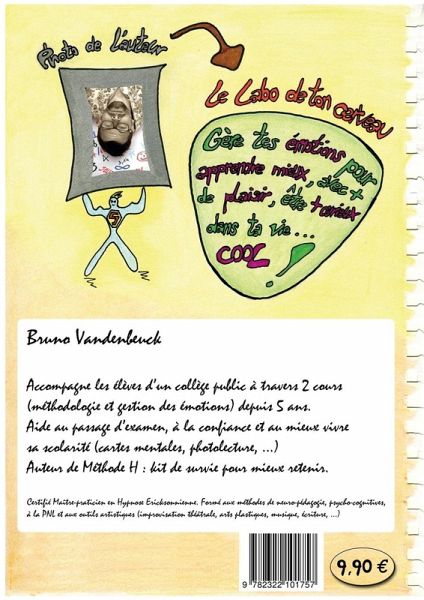 Photo de l'auteur
Le Labo de ton cerveau
Gère tes émotions pour
apprendre mieux, avec +
de plaisir, être + curieux
dans ta vie...
COOL !
5
Bruno Vandenbeuck
Accompagne les élèves d'un collège public à travers 2 cours
(méthodologie et gestion des émotions) depuis 5 ans.
Aide au passage d'examen, à la confiance et au mieux vivre
sa scolarité (cartes mentales, photolecture, ...)
Auteur de Méthode H : kit de survie pour mieux retenir.
Certifié Maître-praticien en Hypnose Ericksonnienne. Formé aux méthodes de neuro-pédagogie, psycho-cognitives,
à la PNL et aux outils artistiques (improvisation théâtrale, arts plastiques, musique, écriture, ...)
9 782322 101757
9,90 €